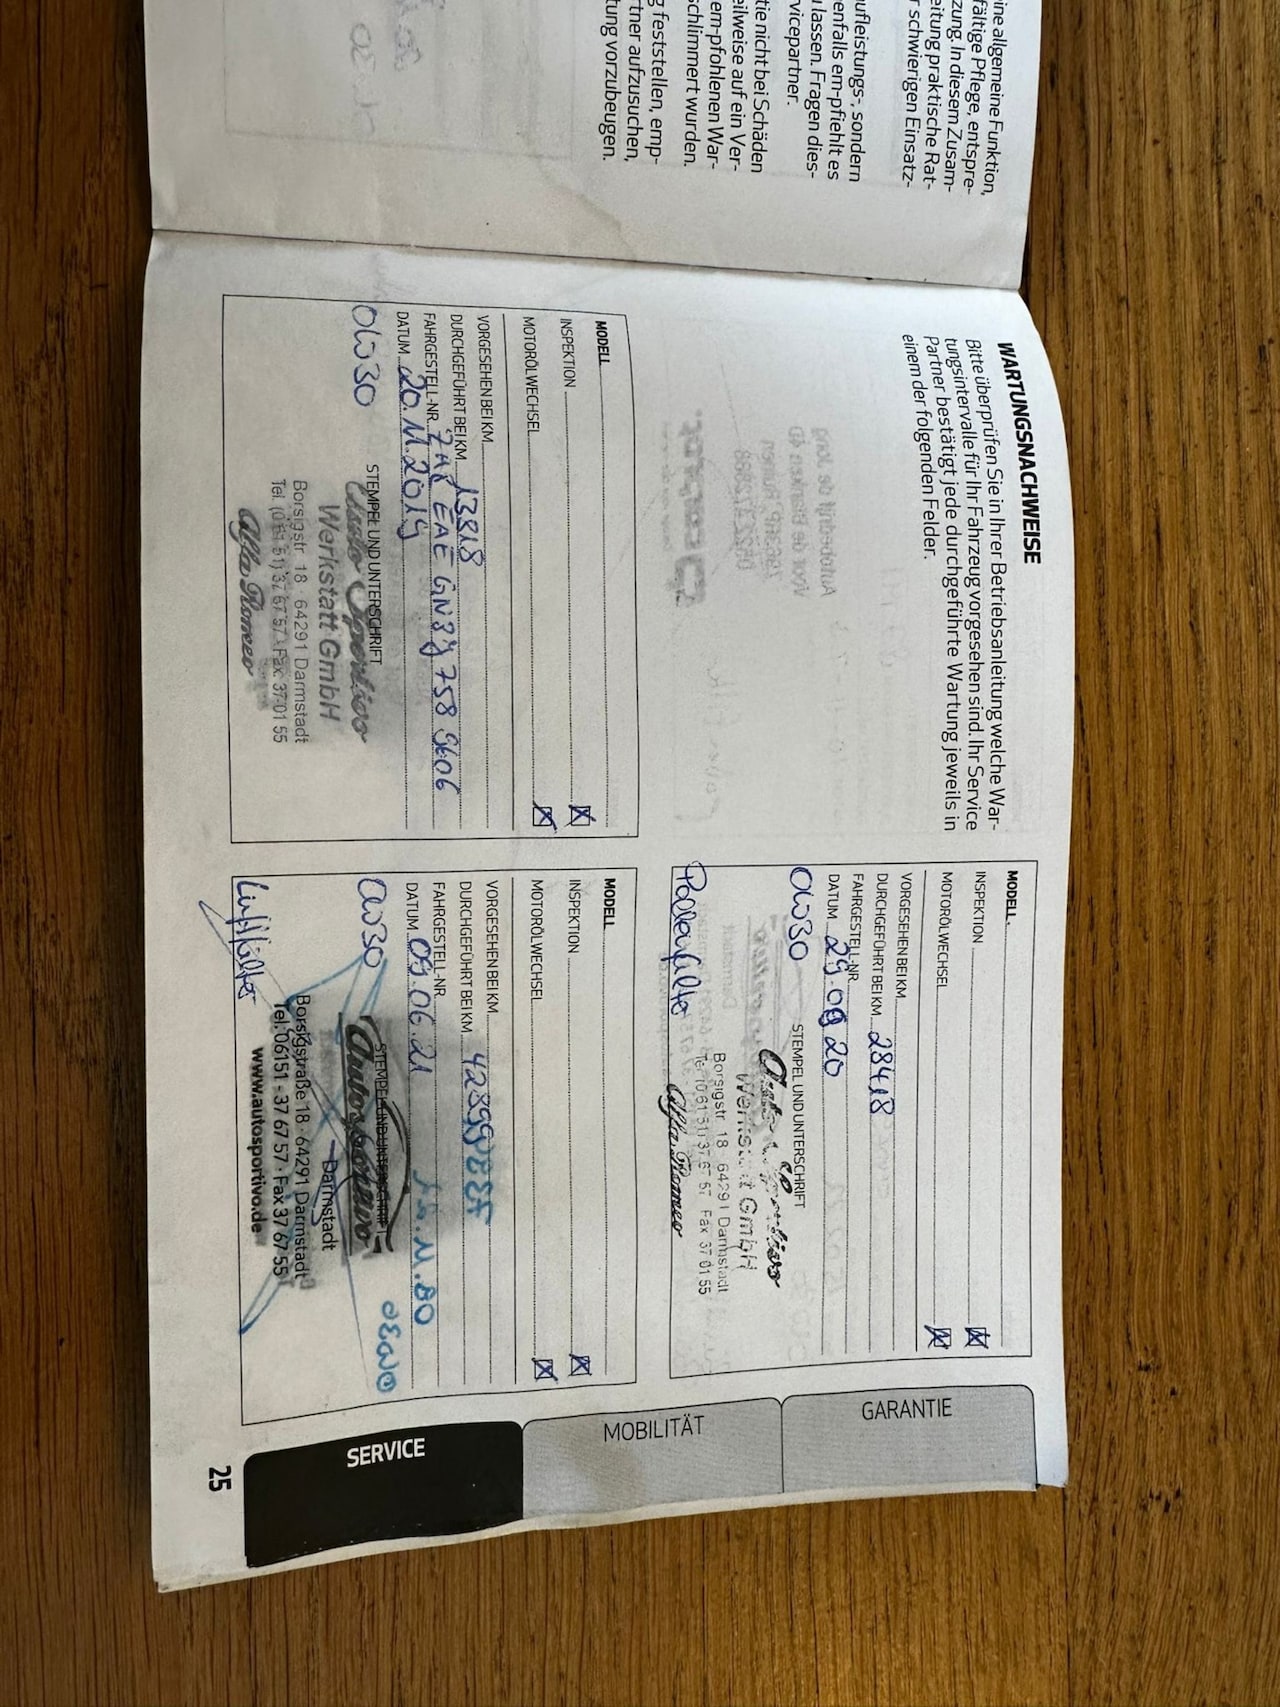 ine allgemeine Funktion,
fältige Pflege, entspre-
zung. In diesem Zusam-
eitung praktische Rat-
r schwierigen Einsatz-
ufleistungs-, sondern
enfalls em-pfiehlt es
u lassen. Fragen dies-
vicepartner.
tie nicht bei Schäden
eilweise auf ein Ver-
em-pfohlenen War-
schlimmert wurden.
g feststellen, emp-
rtner aufzusuchen,
tung vorzubeugen.
WARTUNGSNACHWEISE
Bitte überprüfen Sie in Ihrer Betriebsanleitung welche War-
tungsintervalle für Ihr Fahrzeug vorgesehen sind. Ihr Service
Partner bestätigt jede durchgeführte Wartung jeweils in
einem der folgenden Felder.
MODELL
INSPEKTION
MOTORÖLWECHSEL
VORGESEHEN BEI KM
DURCHGEFÜHRT BEI KM 28418
FAHRGESTELL-NR.
DATUM 29.09 20
0W30
STEMPEL UND UNTERSCHRIFT
Werkstatt GmbH
Borsigstr. 18 64291 Darmstadt
Tel. (0 61 51) 37 67 57 Fax 37 01 55
Alfa Romeo
Pollenfilter
MODELL
INSPEKTION
MOTORÖLWECHSEL
VORGESEHEN BEI KM
DURCHGEFÜHRT BEI KM 13818
FAHRGESTELL-NR. ZAR EAE GN8J 758 9606
DATUM 20.11.2019
0W30
STEMPEL UND UNTERSCHRIFT
Auto Sportivo
Werkstatt GmbH
Borsigstr. 18 64291 Darmstadt
Tel. (0 61 51) 37 67 57 Fax 37 01 55
Alfa Romeo
MODELL
INSPEKTION
MOTORÖLWECHSEL
VORGESEHEN BEI KM
DURCHGEFÜHRT BEI KM 42899
FAHRGESTELL-NR.
DATUM 09.06.21
0W30
STEMPEL UND UNTERSCHRIFT
Autosportivo
Darmstadt
Borsigstraße 18 · 64291 Darmstadt
Tel. 06151 - 37 67 57 · Fax 37 67 55
www.autosportivo.de
Luftfilter
GARANTIE
MOBILITÄT
SERVICE
25